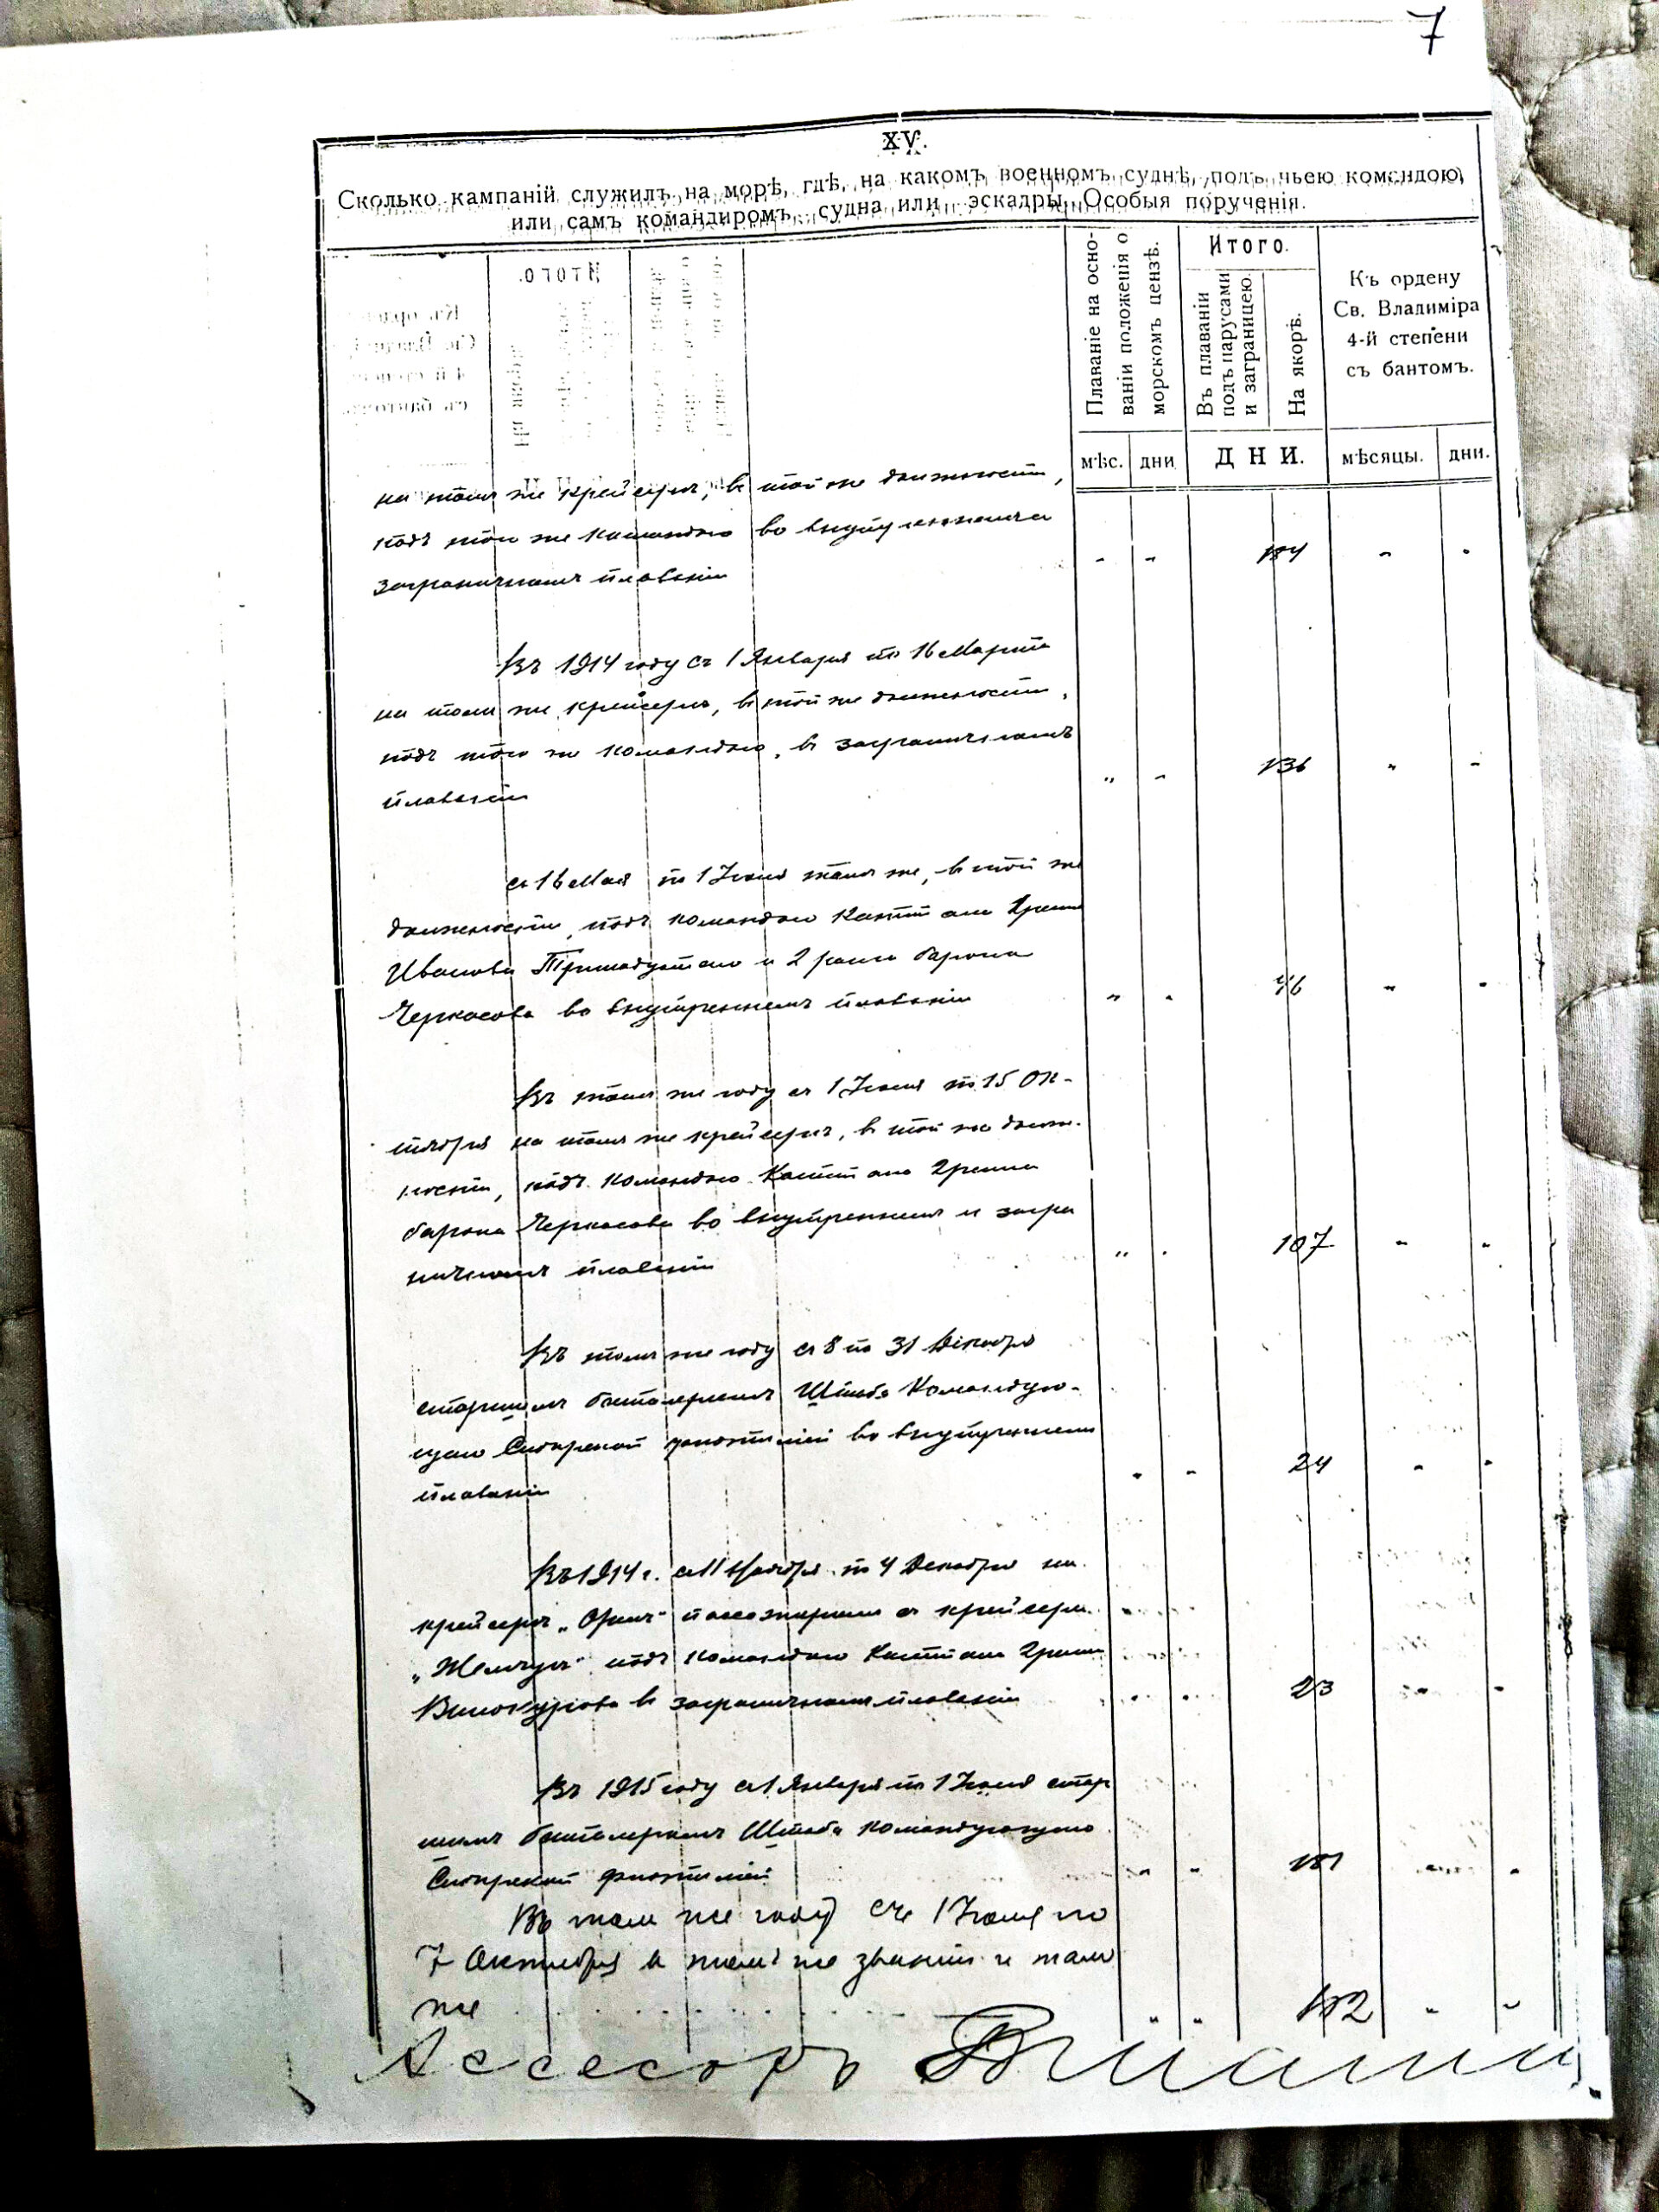 7
XV.
Сколько кампаній служилъ на морѣ, гдѣ, на какомъ военномъ суднѣ, подъ чьею командою,
или самъ командиромъ судна или эскадры. Особыя порученія.
Плаваніе на осно-
ваніи положенія о
морскомъ цензѣ.
Итого.
Въ плаваніи
подъ парусами
и заграницею.
На якорѣ.
Къ ордену
Св. Владиміра
4-й степени
съ бантомъ.
мѣс. дни. Д Н И. мѣсяцы. дни.
на томъ же крейсерѣ, въ той же должности,
подъ тою же командою во внутреннемъ и
заграничномъ плаваніи " " 184 " "
Въ 1914 году съ 1 Января по 16 Марта
на томъ же крейсерѣ, въ той же должности,
подъ тою же командою, въ заграничномъ
плаваніи " " 136 " "
съ 16 Мая по 1 Іюля тамъ же, въ той же
должности, подъ командою Капитана 2 ранга
Иванова Тринадцатаго и 2 ранга барона
Черкасова во внутреннемъ плаваніи " " 46 " "
Въ томъ же году съ 1 Іюля по 15 Ок-
тября на томъ же крейсерѣ, въ той же долж-
ности, подъ командою Капитана 2 ранга
барона Черкасова во внутреннемъ и загра
ничномъ плаваніи " " 107 " "
Въ томъ же году съ 8 по 31 Декабря
старшимъ баталеромъ Штаба Командую-
щаго Сибирской флотиліей во внутреннемъ
плаваніи " " 24 " "
Въ 1914 г. съ 11 Ноября по 4 Декабря на
крейсерѣ „Орелъ" пассажиромъ съ крейсера
„Жемчугъ" подъ командою Капитана 2 ранга
Винокурова въ заграничномъ плаваніи " " 23 " "
Въ 1915 году съ 1 Января по 1 Іюля стар
шимъ баталеромъ Штаба Командующаго
Сибирской флотиліей " " 181 " "
Въ томъ же году съ 1 Іюля по
7 Октября въ томъ же званіи и тамъ
же " " "
Ассесоръ